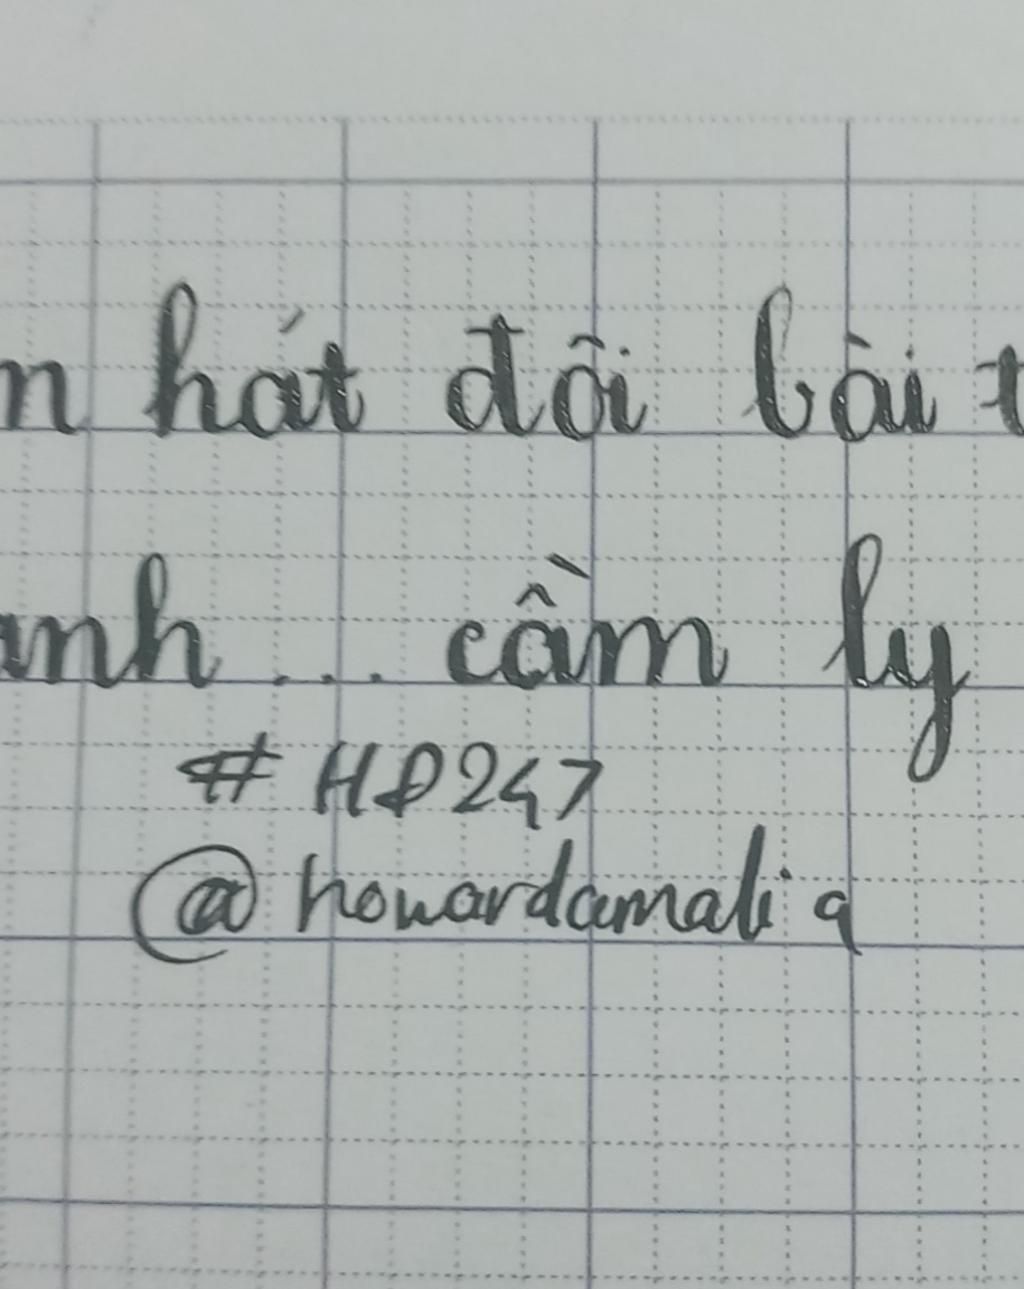 n hát đôi bài t
anh ... cầm ly
#HD247
@howardamaliq